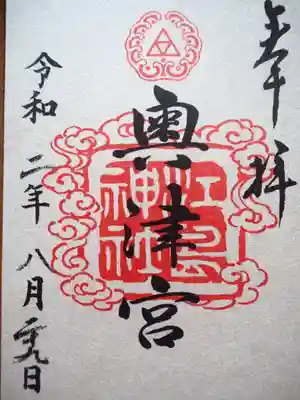 奉拝
奧津宮
江島神社
令和二年八月二十九日